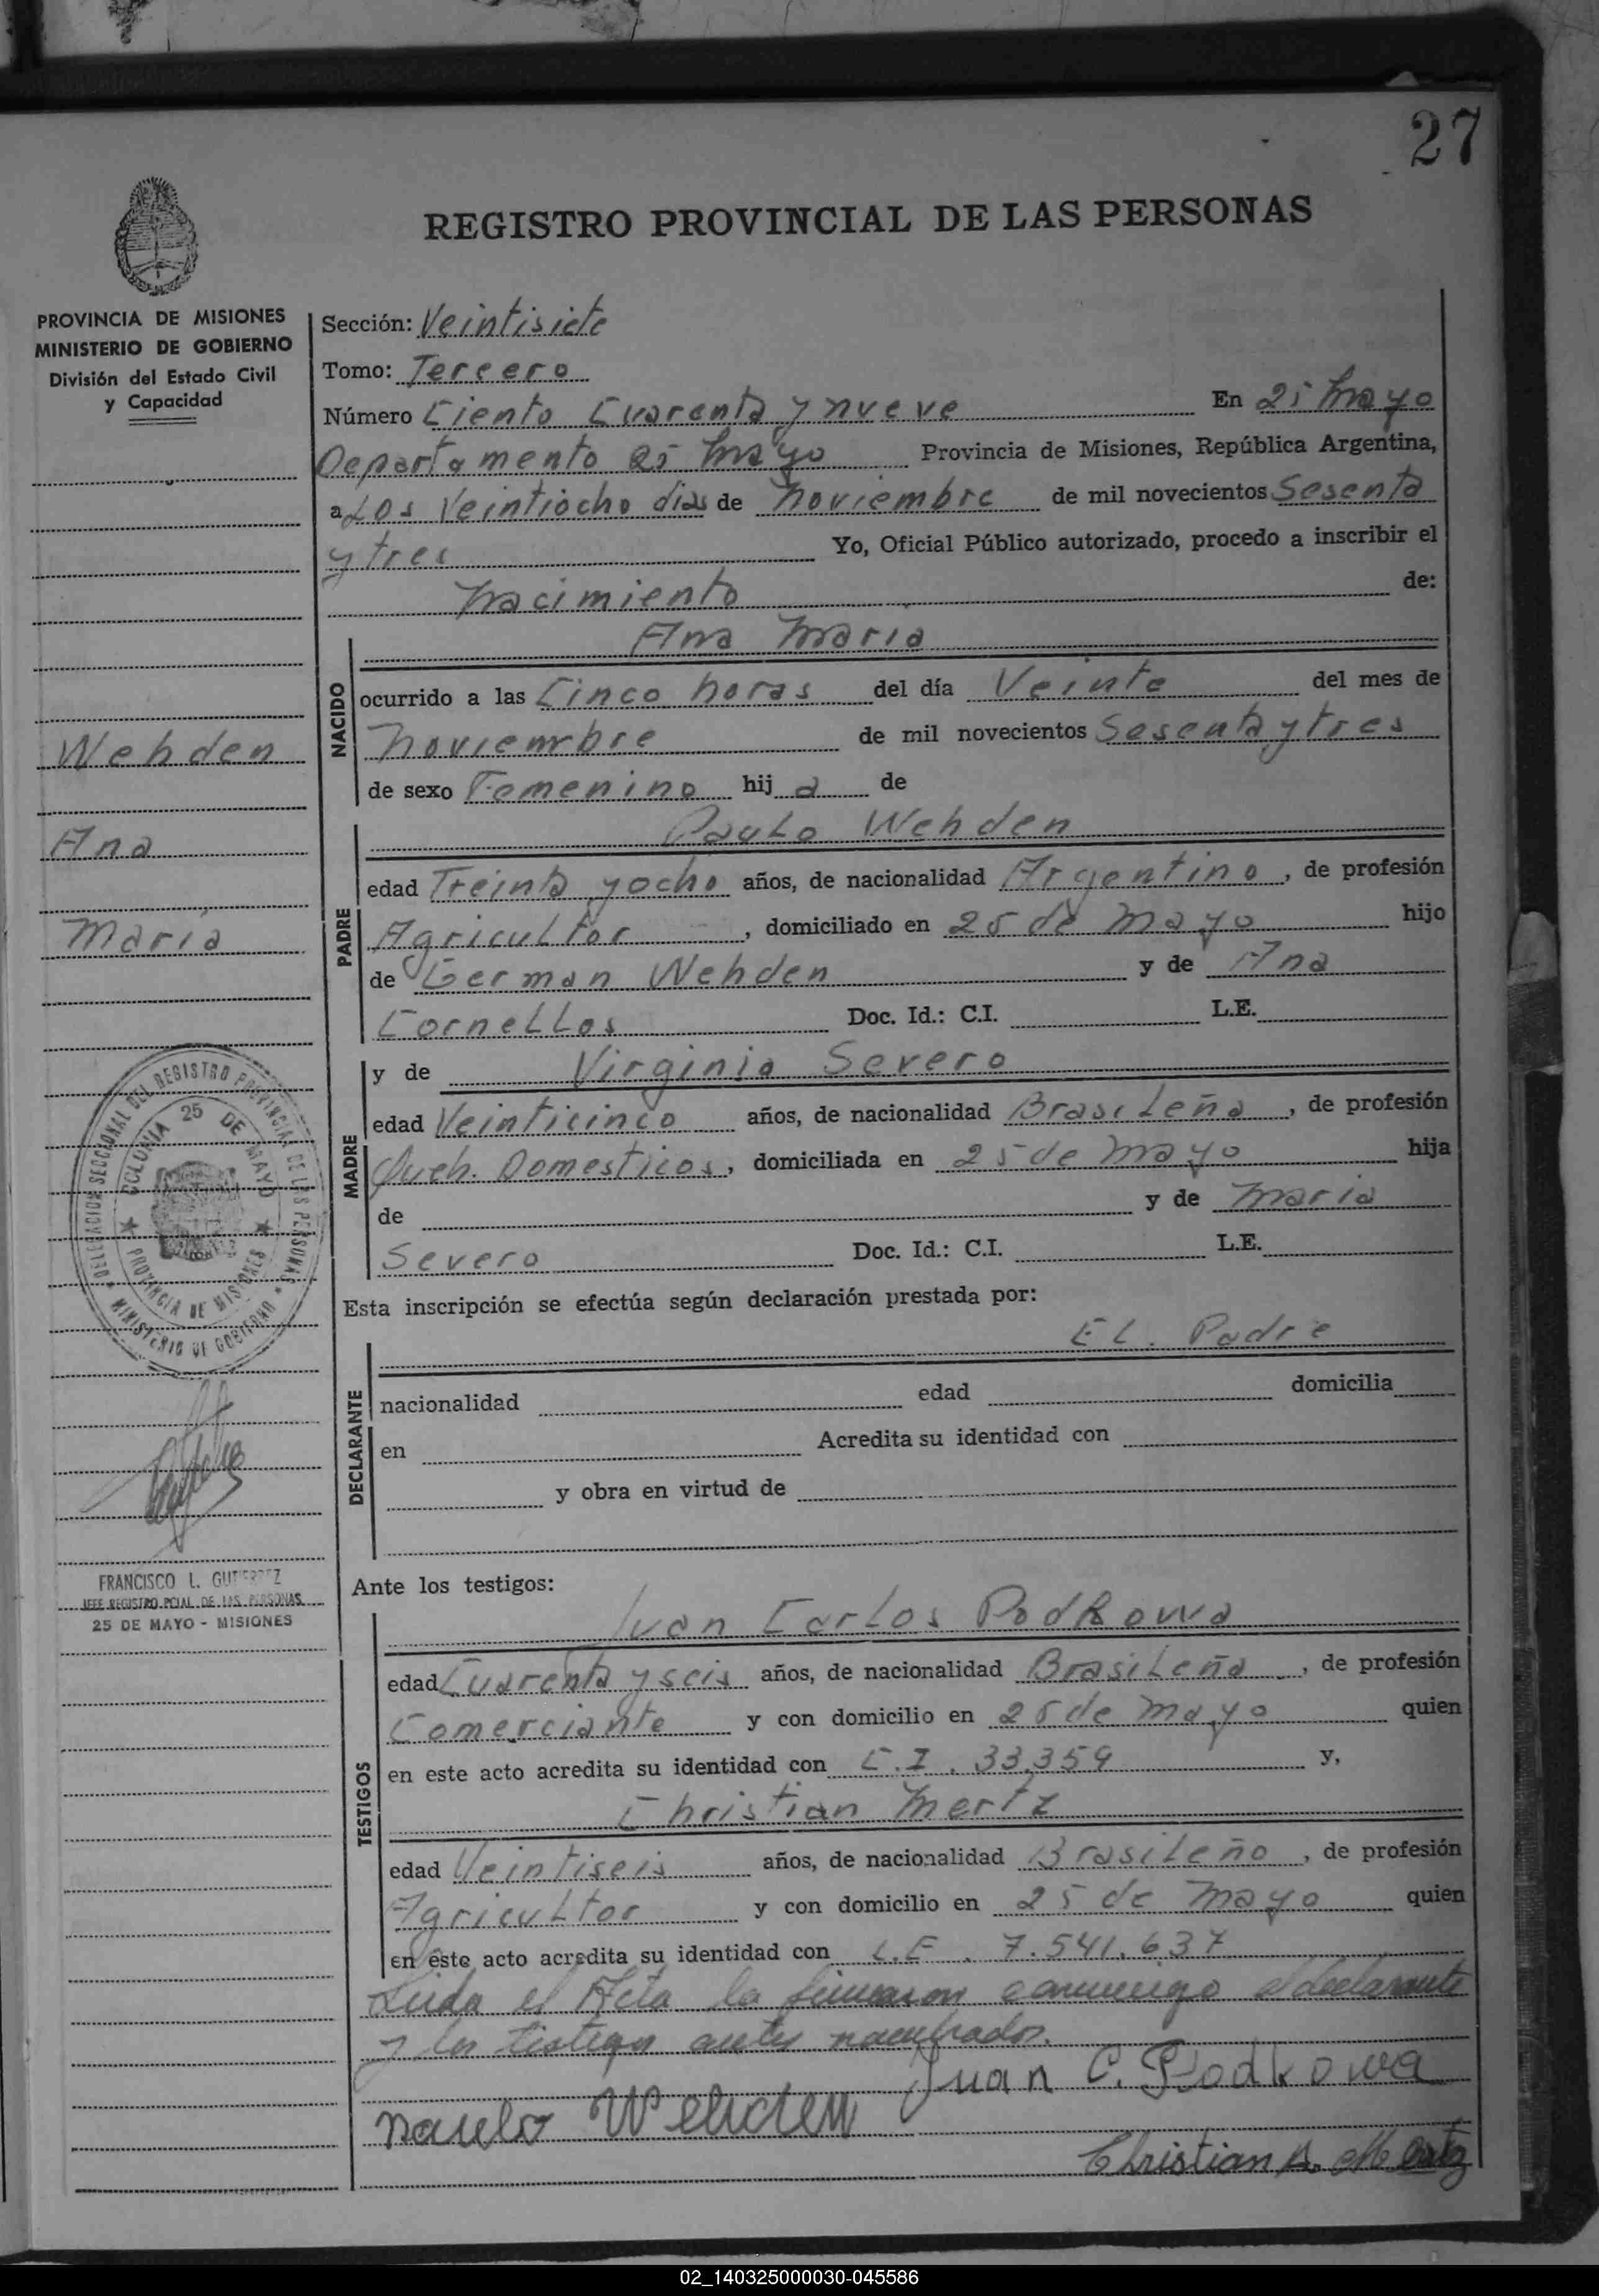 27
REGISTRO PROVINCIAL DE LAS PERSONAS
PROVINCIA DE MISIONES
MINISTERIO DE GOBIERNO
División del Estado Civil
y Capacidad
Wehden
Ana
Maria
DELEGACION SECCIONAL DEL REGISTRO PROVINCIAL DE LAS PERSONAS
MINISTERIO DE GOBIERNO
COLONIA 25 DE MAYO
PROVINCIA DE MISIONES
FRANCISCO L. GUTIERREZ
JEFE REGISTRO PCIAL. DE LAS PERSONAS
25 DE MAYO - MISIONES
Sección: Veintisiete
Tomo: Tercero
Número Ciento Cuarenta y nueve En 25 Mayo
Departamento 25 Mayo Provincia de Misiones, República Argentina,
a Los Veintiocho dias de Noviembre de mil novecientos Sesenta
y tres Yo, Oficial Público autorizado, procedo a inscribir el
Nacimiento de:
NACIDO
Ana Maria
ocurrido a las Cinco horas del día Veinte del mes de
Noviembre de mil novecientos Sesenta y tres
de sexo Femenino hij a de
PADRE
Paulo Wehden
edad Treinta y ocho años, de nacionalidad Argentino, de profesión
Agricultor, domiciliado en 25 de Mayo hijo
de German Wehden y de Ana
Cornellos Doc. Id.: C.I. L.E.
MADRE
y de Virginia Severo
edad Veinticinco años, de nacionalidad Brasileña, de profesión
Queh. Domesticos, domiciliada en 25 de Mayo hija
de y de Maria
Severo Doc. Id.: C.I. L.E.
Esta inscripción se efectúa según declaración prestada por:
DECLARANTE
EL. Padre
nacionalidad edad domicilia
en Acredita su identidad con
y obra en virtud de
Ante los testigos:
TESTIGOS
Juan Carlos Podkowa
edad Cuarenta y seis años, de nacionalidad Brasileña, de profesión
Comerciante y con domicilio en 25 de Mayo quien
en este acto acredita su identidad con C.I. 33.359 y,
Christian Mertz
edad Veintiseis años, de nacionalidad Brasileño, de profesión
Agricultor y con domicilio en 25 de Mayo quien
en este acto acredita su identidad con L.E. 7.541.637
Leida el Acta la firmaron conmigo el declarante
y los testigos antes nombrados.
Juan C. Podkowa
Paulo Wehden
Christian A. Mertz
02_140325000030-045586